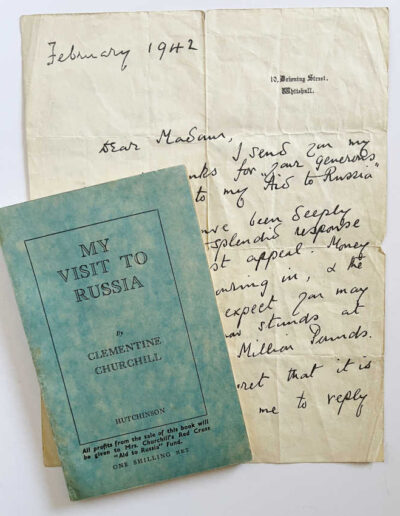 February 1942
10, Downing Street,
Whitehall.
Dear Madam,
I send you my
nks for your generous
to my "Aid to Russia"
ve been deeply
splendid response
st appeal. Money
ouring in, & the
expect you may
ow stands at
Million Pounds.
ret that it is
me to reply
MY
VISIT TO
RUSSIA
By
CLEMENTINE
CHURCHILL
HUTCHINSON
All profits from the sale of this book will
be given to Mrs. Churchill's Red Cross
"Aid to Russia" Fund.
ONE SHILLING NET